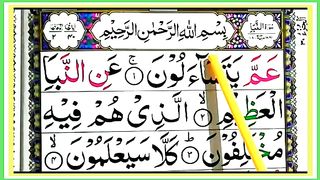 بِسْمِ اللهِ الرَّحْمٰنِ الرَّحِيْمِ
عَمَّ يَتَسَآءَلُوْنَ ۚ ﴿١﴾ عَنِ النَّبَاِ
الْعَظِيْمِ ۙ ﴿٢﴾ الَّذِيْ هُمْ فِيْهِ
مُخْتَلِفُوْنَ ؕ ﴿٣﴾ كَلَّا سَيَعْلَمُوْنَ ۙ ﴿٤﴾